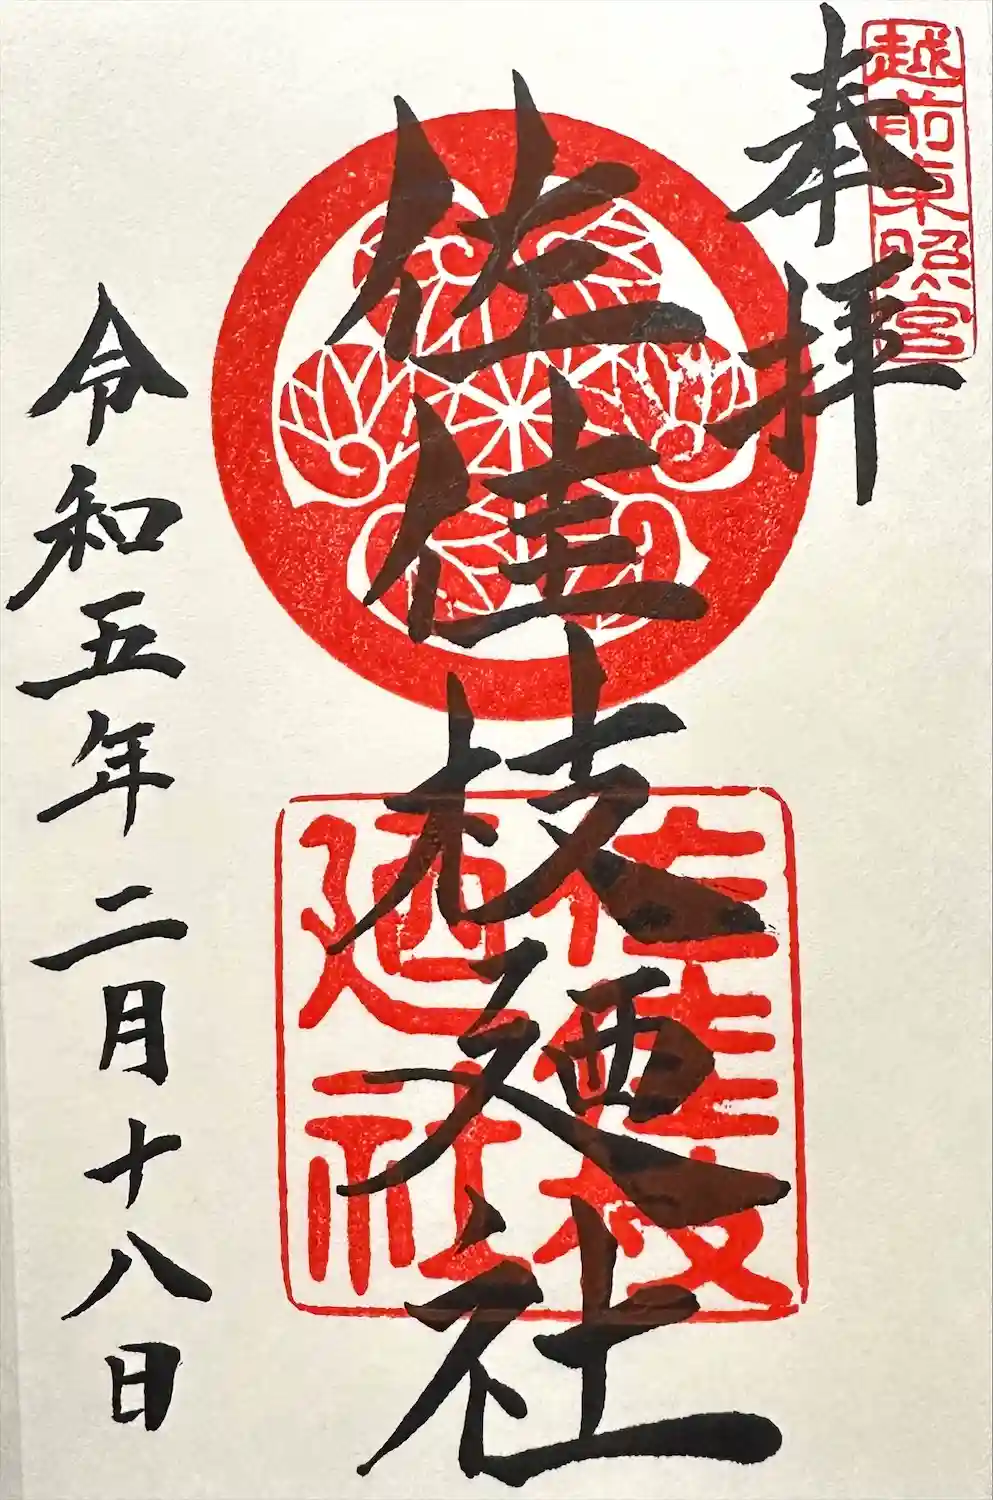 越前東照宮
奉拝
佐佳枝廼社
佐佳枝
廼社
令和五年二月十八日